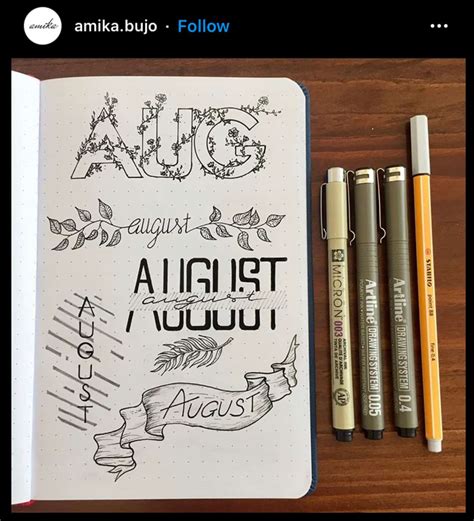 amika
amika.bujo · Follow
AUG
august
AUGUST
august
AUGUST
August
MICRON
003
Artline
DRAWING SYSTEM
0.05
Artline
DRAWING SYSTEM
0.4
STABILO
point 88
fine 0.4